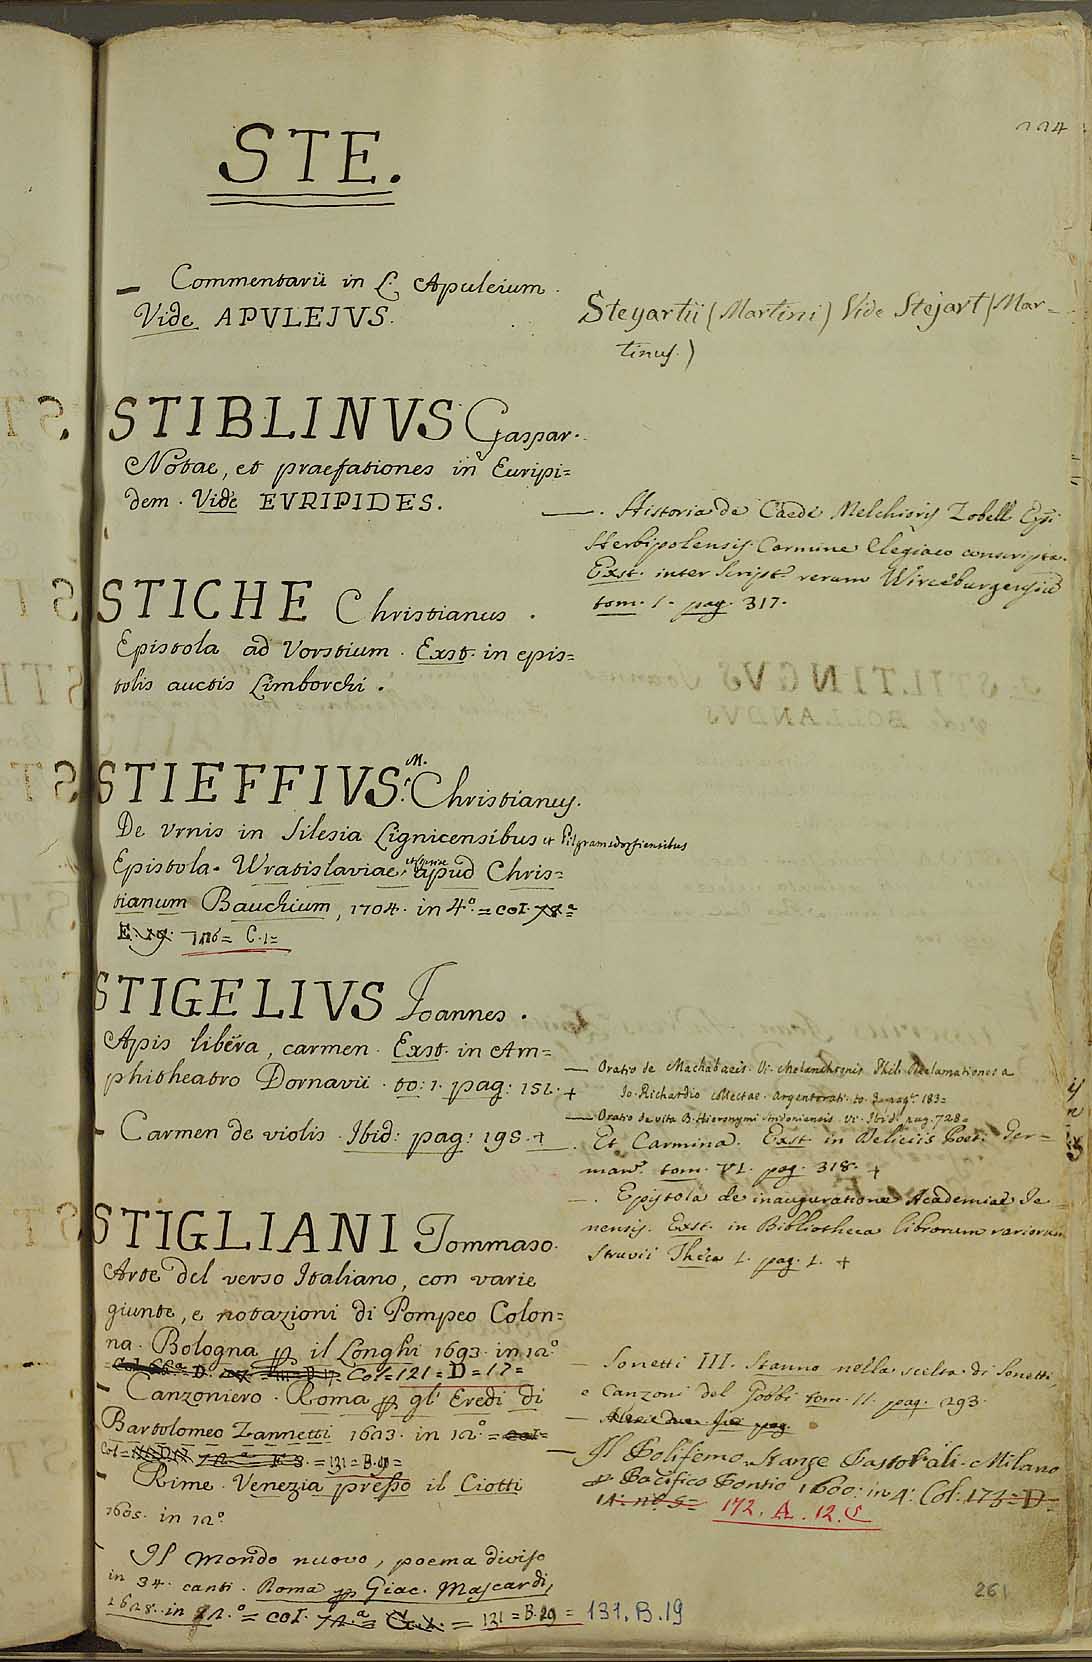 STE.
224
— Commentarii in L. Apuleium.
Vide APVLEJVS.
Steyartii (Martini) Vide Stejart (Mar-
tinus.)
STIBLINVS Gaspar.
Notae, et praefationes in Euripi=
dem. Vide EVRIPIDES.
—. Historia de Caede Melchioris Zobell Epi
Herbipolensis. Carmine Elegiaco conscripta.
Exst. inter Script. rerum Wirceburgensiũ
tom. 1. pag. 317.
STICHE Christianus.
Epistola ad Vorstium. Exst. in epis=
tolis auctis Limborchi.
STIEFFIVS M. Christianus.
De Vrnis in Silesia Lignicensibus et Pilgramsdorfiensibus
Epistola. Wratislaviae, apud Chris=
tianum Bauchium, 1704. in 4.º = col. 78ª=
E. 19. 126= C.1=
STIGELIVS Joannes.
Apis libëra, carmen. Exst. in Am=
phitheatro Dornavii. to: 1. pag: 152. +
— Carmen de violis. Ibid: pag: 198. +
— Oratio de Machabaeis. Vi. Melanchtonis Phil. Declamationes a
Jo. Richardio collectae. Argentorati. to. 3. pag. 183=
— Oratio de vita B. Hieronymi. Vi. Ibid. pag. 728=
—. Et Carmina. Exst. in Deliciis Poet. Ger=
man. tom. VI. pag. 318. +
—. Epistola de inauguratione Academiae Je=
nensis. Exst. in Bibliotheca librorum variorum
Struvii Theca 1. pag. 1. +
STIGLIANI Tommaso.
Arte del verso Italiano, con varie
giunte, e notazioni di Pompeo Colon=
na. Bologna per il Longhi 1693. in 12º
Col=121=D=17=
— Canzoniero. Roma per gl' Eredi di
Bartolomeo Zannetti 1623. in 12.º = col=
Col= 72.ª E 3. = 131=B.20=
— Rime. Venezia presso il Ciotti
1605. in 12º.
Il Mondo nuovo, poema diviso
in 34. canti. Roma per Giac. Mascardi,
1628. in 12.º = col. 72.ª = G.x. = 131=B.29= 131.B.19
Sonetti III. Stanno nella scelta di Sonetti,
e Canzoni del Gobbi tom. II. pag. 293.
— Il Polifemo. Stanze Pastorali. Milano
per Pacifico Pontio 1600. in 4. Col. 173=D=
14. nº. 5= 172. A. 12. C
261